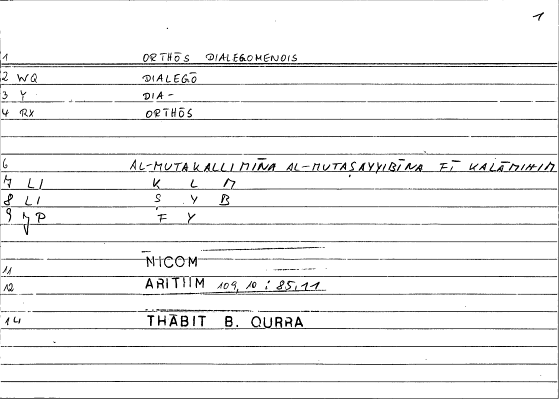 1
1 ORTHŌS DIALEGOMENOIS
2 WQ DIALEGŌ
3 Y DIA-
4 RX ORTHŌS
6 AL-MUTAKALLIMĪNA AL-MUTAṢAYYIBĪNA FĪ KALĀMIHIM
7 LI K L M
8 LI Ṣ Y B
9 JP F Y
11 NICOM
12 ARITIIM 109, 10 : 85,11
14 THĀBIT B. QURRA